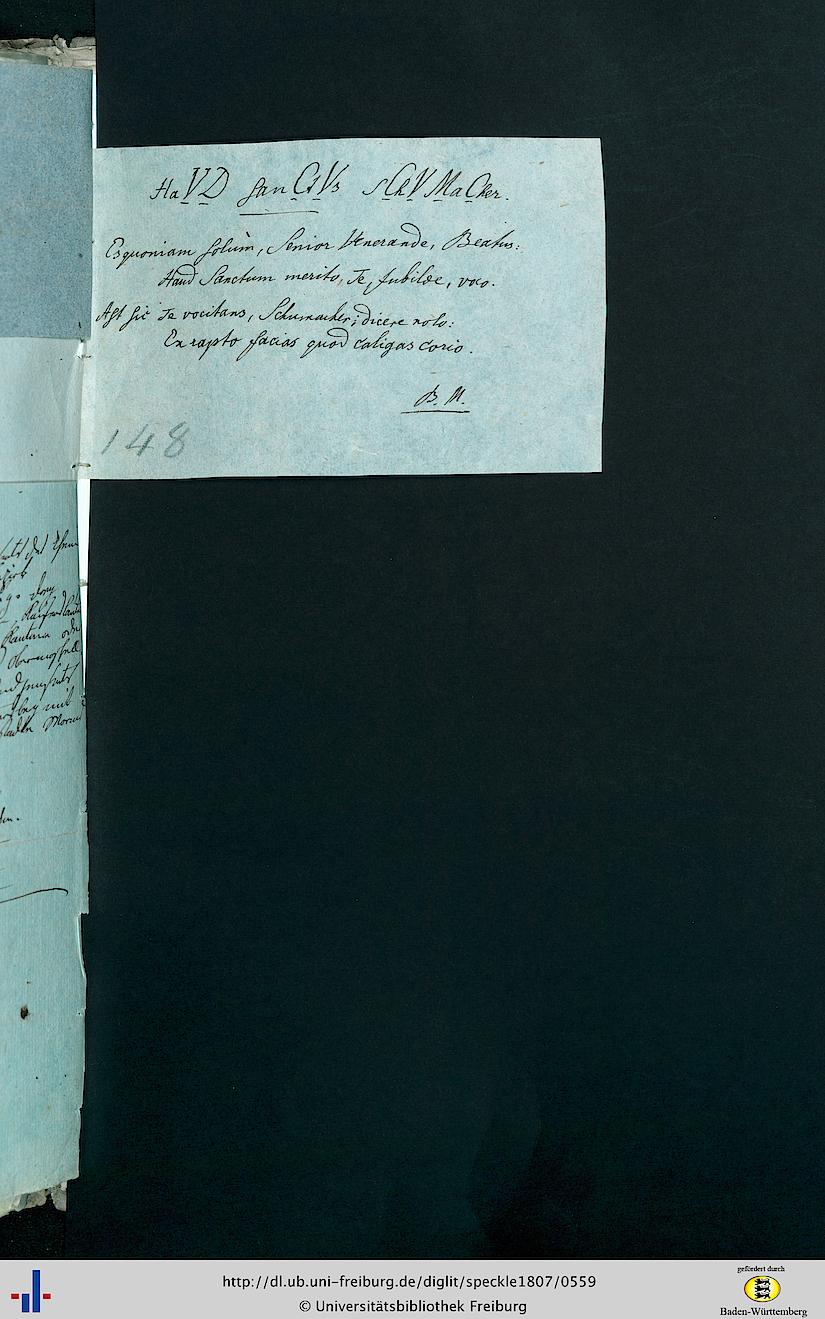 HaVD sanCtVs sChVMaCher.
Es quoniam solùm, Senior Venerande, Beatus:
Haud Sanctum merito, Te, Jubilae, voco.
Ast sic Te vocitans, Schumacher; dicere nolo:
Ex rapto facias quod caligas corio.
B. M.
148
http://dl.ub.uni-freiburg.de/diglit/speckle1807/0559
© Universitätsbibliothek Freiburg
gefördert durch
Baden-Württemberg